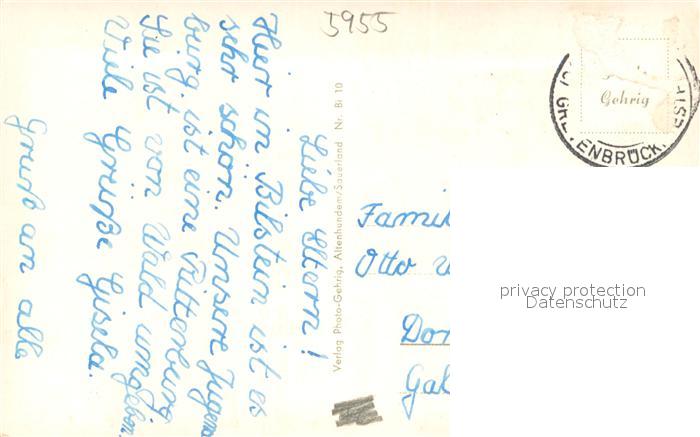 5955
Liebe Eltern!
Hier in Bilstein ist es
sehr schön. Unsere Jugend
burg ist eine Ritterburg
Sie ist von Wald umgeben.
Viele Grüße Gisela.
Gruß an alle
Verlag Photo-Gehrig, Altenhundem/Sauerland Nr. Bi 10
Gehrig
GREVENBRÜCK
Famil
Otto
Dor
Gal
privacy protection
Datenschutz